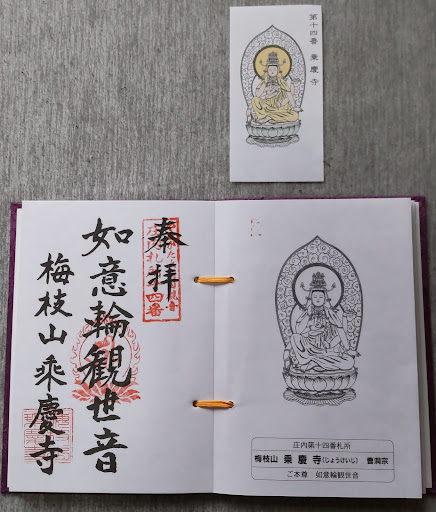 第十四番 乗慶寺
奉拝
如意輪觀世音
梅枝山乘慶寺
四番
庄内第十四番札所
梅枝山 乗慶寺(じょうけいじ) 曹洞宗
ご本尊 如意輪観世音